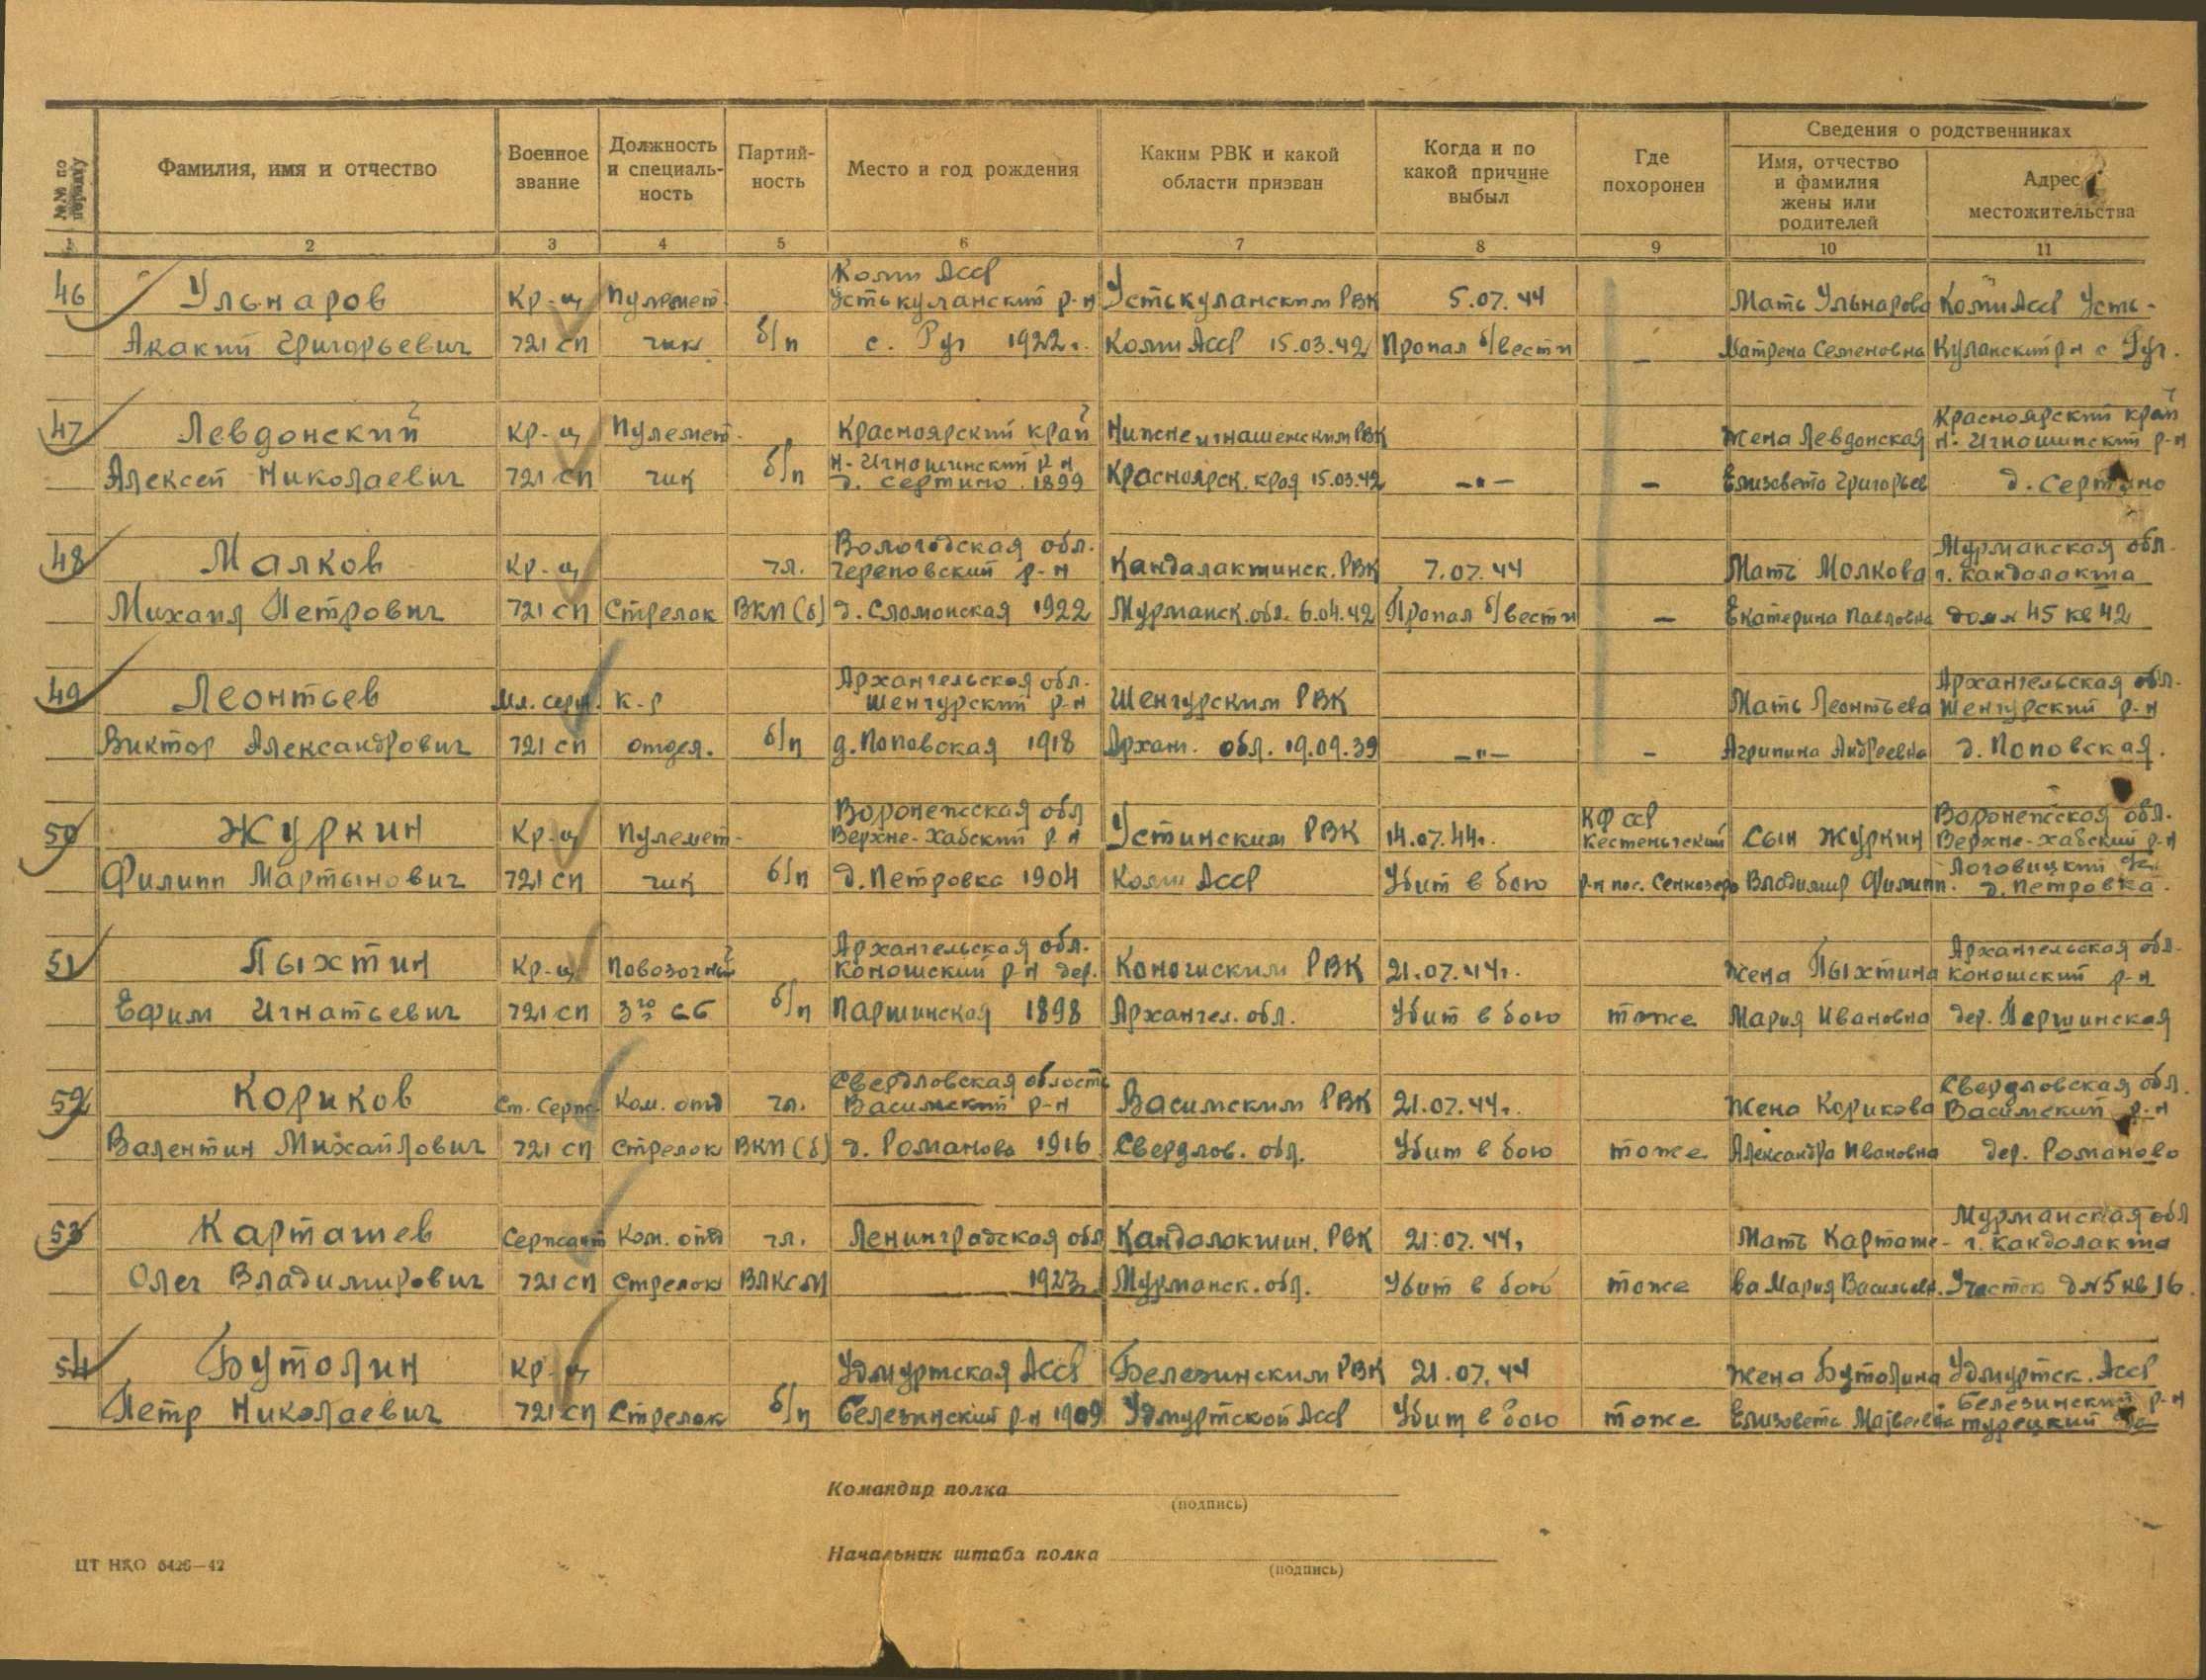 №№ по порядку
Фамилия, имя и отчество
Военное звание
Должность и специаль-ность
Партий-ность
Место и год рождения
Каким РВК и какой области призван
Когда и по какой причине выбыл
Где похоронен
Сведения о родственниках
Имя, отчество и фамилия жены или родителей
Адрес местожительства
1 2 3 4 5 6 7 8 9 10 11
Коми Асср
46 Ульнаров Кр-ц Пулемет. Устькуланский р-н Устькуланским РВК 5.07.44 Мать Ульнарова Коми Асср Усть-
Акакий Григорьевич 721 сп чик б/п с. Руг 1922г. Коми Асср 15.03.42 Пропал б/вести – Матрена Семеновна Куланский р-н с Руг.
Красноярский край
47 Левдонский Кр-ц Пулемет- Красноярский край Нижнеигнашенским РВК Жена Левдонская Н.-Игношинский р-н
Н-Игношинский р-н
Алексей Николаевич 721 сп чик б/п д. Сертино 1899 Красноярск. край 15.03.42 –"– – Елизовета Григорьев д. Сертино
Вологодская обл. Мурманская обл.
48 Малков Кр-ц чл. Череповский р-н Кандалактинск. РВК 7.07.44 Мать Молкова г. Кандолакта
Михаил Петрович 721 сп Стрелок ВКП(б) д. Сломонская 1922 Мурманск. обл. 6.04.42 Пропал б/вести – Екатерина Павловна дом 45 кв 42
Архангельская обл. Архангельская обл.
49 Леонтьев Мл. серж. к-р Шенгурский р-н Шенгурским РВК Мать Леонтьева Шенгурский р-н
Виктор Александрович 721 сп отдел. б/п д. Поповская 1918 Архан. обл. 19.09.39 –"– – Агрипина Андреевна д. Поповская.
Воронежская обл КФсср Воронежская обл.
50 Журкин Кр-ц Пулемет- Верхне-Хабский р-н Устинским РВК 14.07.44г. Кестеньгский Сын Журкин Верхне-Хабский р-н
Логовицкий
Филипп Мартынович 721 сп чик б/п д. Петровка 1904 Коми Асср Убит в бою р-н пос. Сенкозеро Владимир Филипп. д. Петровка.
Архангельская обл. Архангельская обл.
51 Пыхтин Кр-ц Повозочный Коношский р-н дер. Коношским РВК 21.07.44г. Жена Пыхтина Коношский р-н
Ефим Игнатьевич 721 сп 3го сб б/п Паршинская 1898 Архангел. обл. Убит в бою тоже Мария Ивановна дер. Першинская
Свердловская область Свердловская обл.
52 Кориков Ст. Серж Ком. отд чл. Васимский р-н Васимским РВК 21.07.44г. Жена Корикова Васимский р-н
Валентин Михайлович 721 сп Стрелок ВКП(б) д. Романово 1916 Свердлов. обл. Убит в бою тоже Александра Ивановна дер. Романово
Мурманская обл
53 Карташев Сержант Ком. отд чл. Ленинградская обл Кандолокшин. РВК 21.07.44г Мать Карташе- г. Кандолакта
Олег Владимирович 721 сп Стрелок ВЛКСМ 1923 Мурманск. обл. Убит в бою тоже ва Мария Васильевн. Участок д№5 кв 16
54 Бутолин Кр-ц Удмуртская Асср Белезинским РВК 21.07.44 Жена Бутолина Удмуртск. Асср
Белезинский р-н
Петр Николаевич 721 сп Стрелок б/п Белезинский р-н 1909 Удмуртской Асср Убит в бою тоже Елизовета Матвеевна турецкий
Командир полка
(подпись)
Начальник штаба полка
(подпись)
ЦТ НКО 6426—42